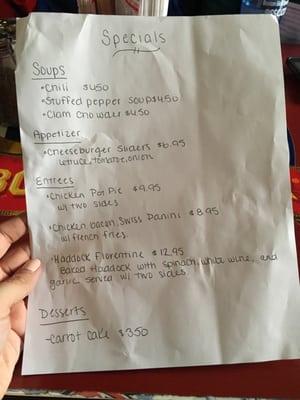 Specials
Soups
•Chili $4.50
•Stuffed pepper soup $4.50
•Clam Chowder $4.50
Appetizer
•Cheeseburger Sliders $6.95
lettuce, tomatoe, onion
Entrees
•Chicken Pot Pie $9.95
w/ two sides
•Chicken bacon, Swiss Panini $8.95
w/ french fries
•Haddock Florentine $12.95
Baked Haddock with spinach, white wine, and
garlic served w/ two sides
Desserts
-Carrot cake $3.50